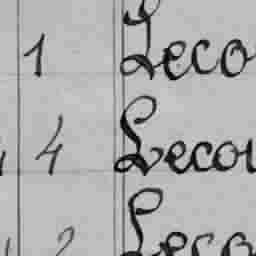 1 Leco
4 Lecou
2 Leco